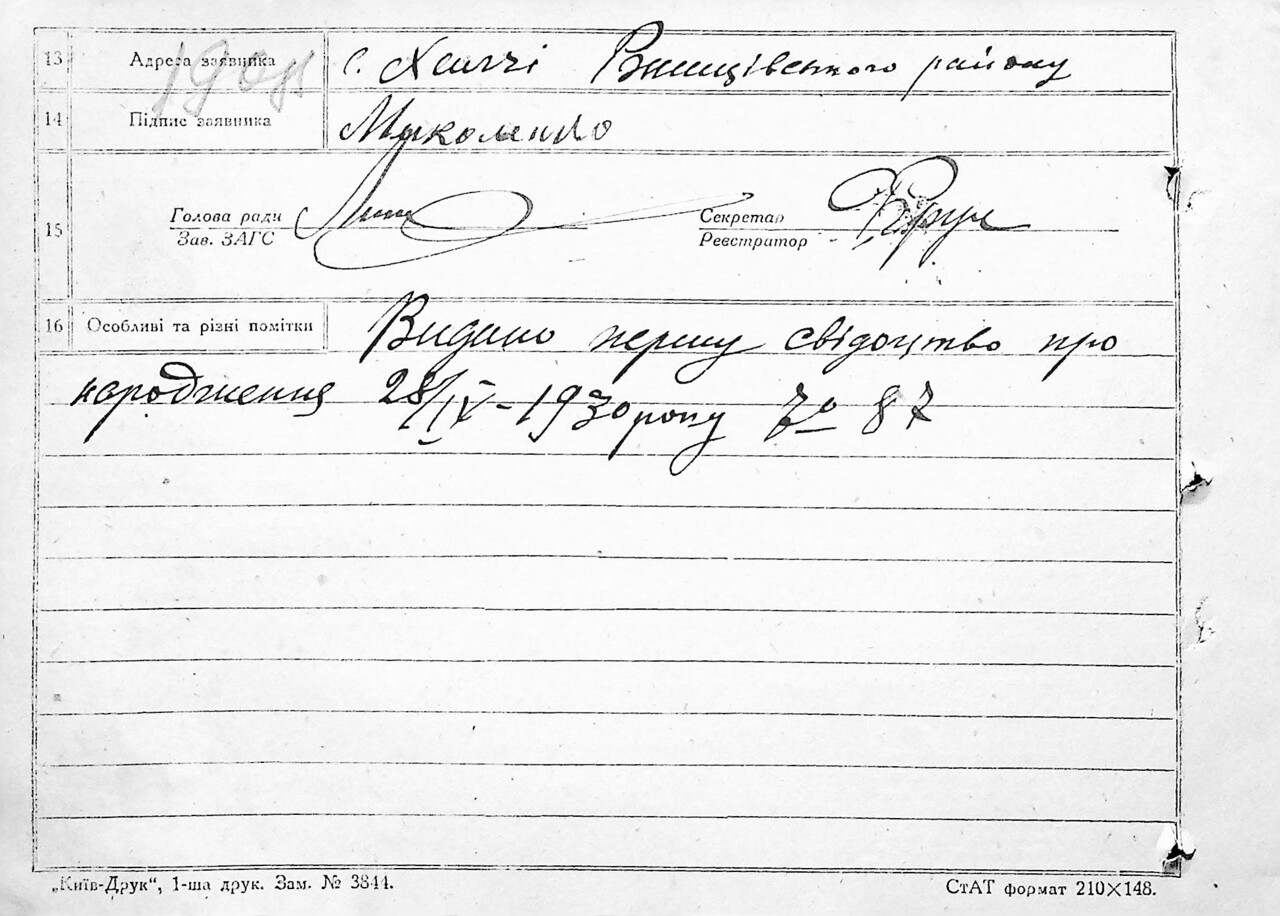 13 Адреса заявника с. Хсиччі район​у
14 Підпис заявника Миколенко
Голова ради Секретар
15 Зав. ЗАГС Реєстратор
16 Особливі та різні помітки Видано першу свідоцтво про
народження 28/IV-1930 року № 87
„Київ-Друк“, 1-ша друк. Зам. № 3844. СтАТ формат 210×148.